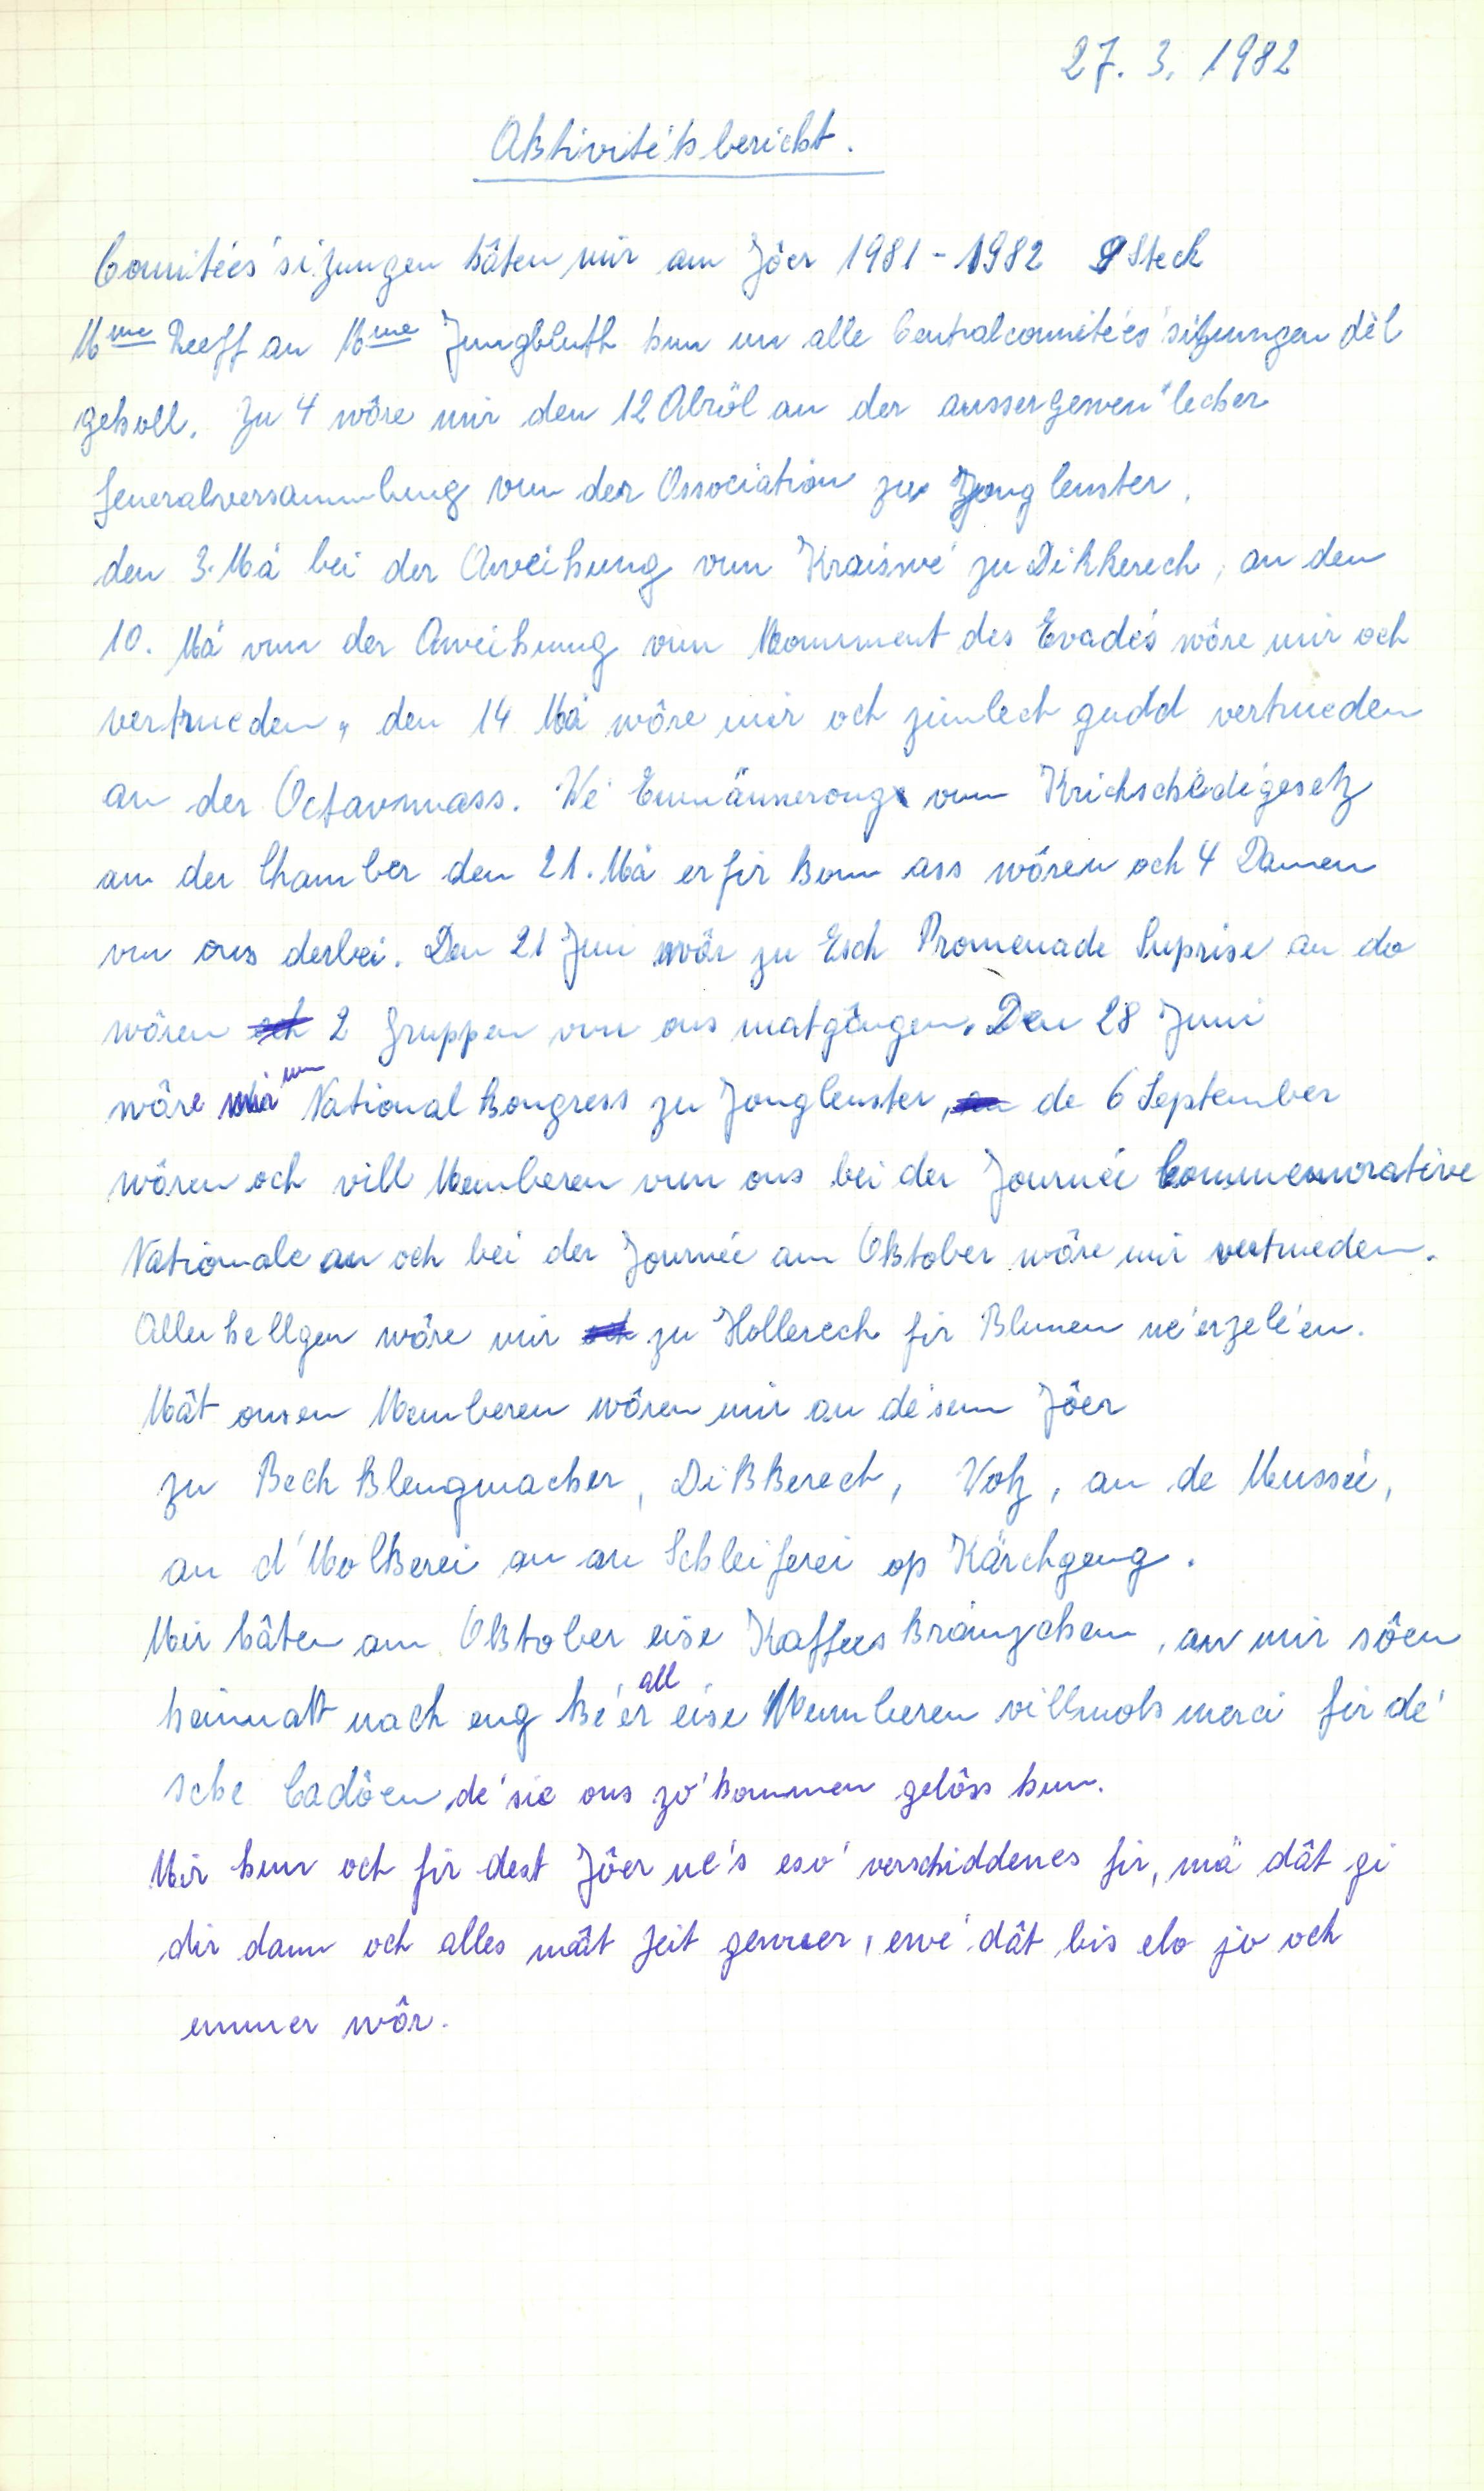 27. 3. 1982
Aktivitétsbericht.
Comitéés'sitzungen hâten mir am Jôer 1981 - 1982 9 Steck
Mme Reeff an Mme Jungbluth hun un alle Centralcomitéés'sitzungen dèl
geholl. Zu 4 wôre mir den 12 Abröl an der aussergewen"lecher
Generalversammlung vun der Association zu Jonglenster.
den 3. Má bei der Aweihung vum Kraizwé zu Dikkerech, an den
10. Má vun der Aweihung vum Monument des Evadés wôre mir och
vertrueden, den 14 Má wôre mir och zimlech gudd vertrueden
an der Octavsmass. Wé Emännerong vum Krichschèdégesetz
an der Chamber den 21. Má erfir komm ass wôren och 4 Damen
vun ons derbei. Den 21 Juni wôr zu Esch Promenade Suprise an do
wôren och 2 Gruppen vun ons matgângen. Den 28 Juni
wôre mir um National Kongress zu Jonglenster, an de 6 September
wôren och vill Memberen vun ons bei der Journéé Commemorative
Nationale an och bei der Journéé am Oktober wôre mir vertrueden.
Allerhellgen wôre mir och zu Hollerech fir Blumen né'erzelé'en.
Mât onsen Memberen wôren mir an désem Jôer
zu Bech Klengmacher, Dikkerech, Votz, an de Musséé,
an d'Molkerei an an Schleiferei op Kärchgeng.
Mir hâten am Oktober eise Kaffees Kränzchen, an mir sôen
heimatt nach eng Ké'er all eise Memberen villmols merci fir dé'
sche Cadôen, dé'sie ons zo'kommen gelôss hun.
Mir hun och fir dest Jôer né's eso' verschiddenes fir, mä dât gi
dir dann och alles mât Zeit gewuer, ewé'dât bis elo jo och
emmer wôr.